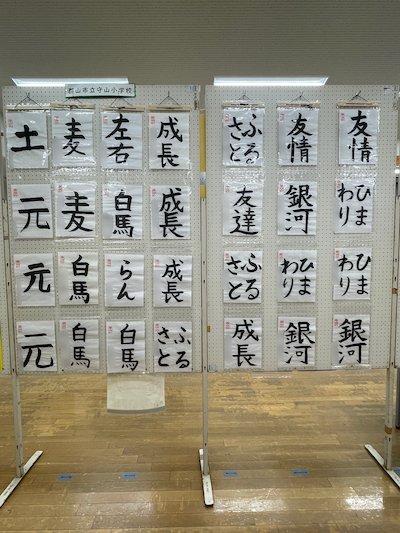 郡山市立守山小学校
土
麦
左右
成長
元
麦
白馬
成長
元
白馬
らん
成長
元
白馬
白馬
ふる
さと
ふる
さと
友情
友情
友達
銀河
ひま
わり
ふる
さと
ひま
わり
ひま
わり
成長
銀河
銀河